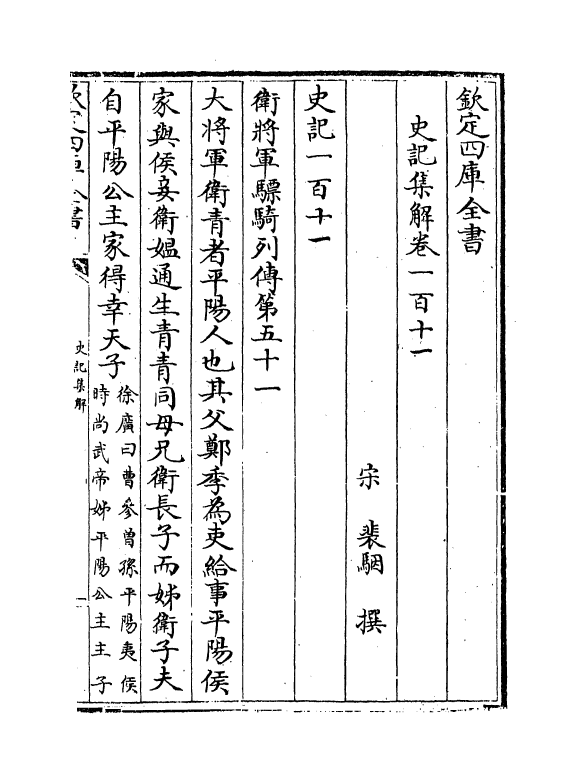 欽定四庫全書
史記集解卷一百十一
宋 裴駰 撰
史記一百十一
衛將軍驃騎列傳第五十一
大將軍衛青者平陽人也其父鄭季為吏給事平陽侯
家與侯妾衛媼通生青青同母兄衛長子而姊衛子夫
自平陽公主家得幸天子
徐廣曰曹參曾孫平陽夷侯
時尚武帝姊平陽公主主子
欽定四庫全書
史記集解
一